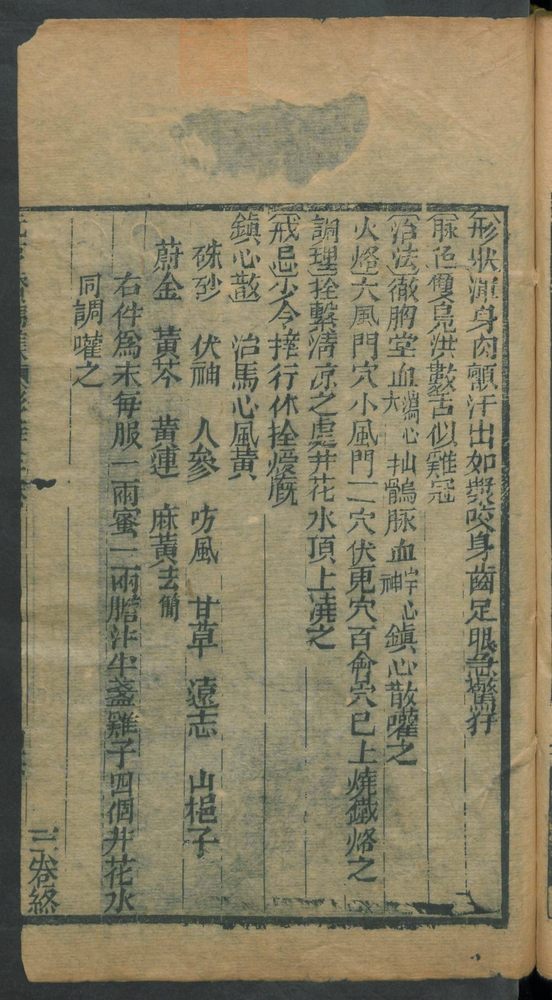 形状渾身肉顫汗出如漿咬身齧足眼急驚狂
脉色雙鳬洪數舌似雞冠
治法徹胸堂血瀉心火抽鶻脉血安心神鎮心散嚾之
火烙大風門穴小風門二穴伏兎穴百會穴已上燒鐵烙之
調理拴繫清凉之處井花水頂上澆之
戒忌少令捧行休拴煖廐
鎮心散　治馬心風黄
硃砂　伏神　人參　防風　甘草　遠志　山梔子
蔚金　黄芩　黄連　麻黄去節
右件為末每服一兩蜜一兩膽汁半盞雞子四個井花水
同調嚾之
三卷終